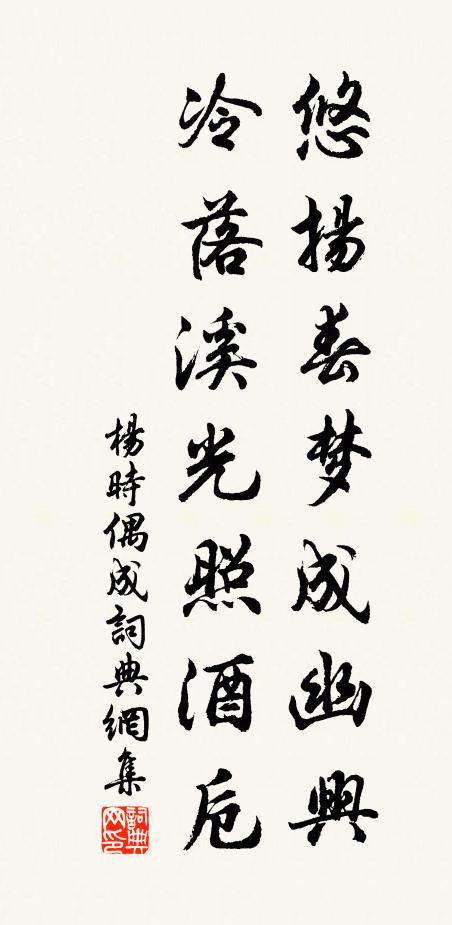 悠揚春梦成幽興
冷落溪光照酒卮
楊時偶成詞典網集
詞典网印